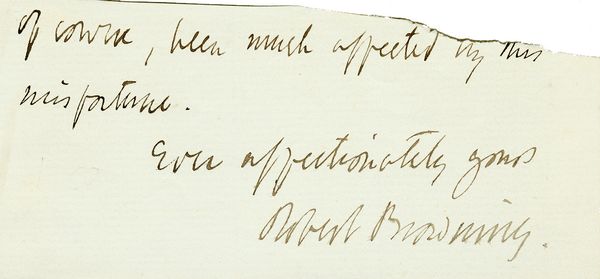 of course, been much affected by this
misfortune.
Ever affectionately yours
Robert Browning.